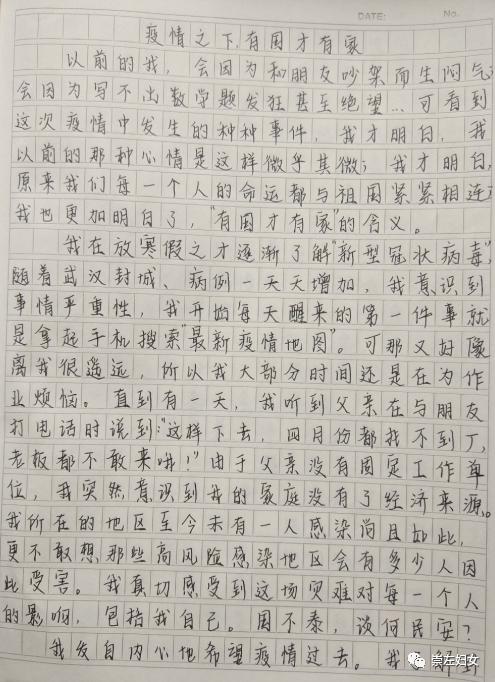 DATE: No.
疫情之下,有国才有家
以前的我,会因为和朋友吵架而生闷气,
会因为写不出数学题发狂甚至绝望…可看到
这次疫情中发生的种种事件,我才明白,我
以前的那种心情是这样微乎其微;我才明白,
原来我们每一个人的命运都与祖国紧紧相连;
我也更加明白了,“有国才有家”的含义。
我在放寒假之才逐渐了解“新型冠状病毒”,
随着武汉封城、病例一天天增加,我意识到
事情严重性,我开始每天醒来的第一件事就
是拿起手机搜索“最新疫情地图”。可那又好像
离我很遥远,所以我大部分时间还是在为作
业烦恼。直到有一天,我听到父亲在与朋友
打电话时说到:“这样下去,四月份都找不到丁,
老板都不敢来哦!”由于父亲没有固定工作单
位,我突然意识到我的家庭没有了经济来源。
我所在的地区至今未有一人感染尚且如此,
更不敢想那些高风险感染地区会有多少人因
此受害。我真切感受到这场灾难对每一个人
的影响,包括我自己。国不泰,谈何民安?
我发自内心地希望疫情过去。我了解到
崇左妇女